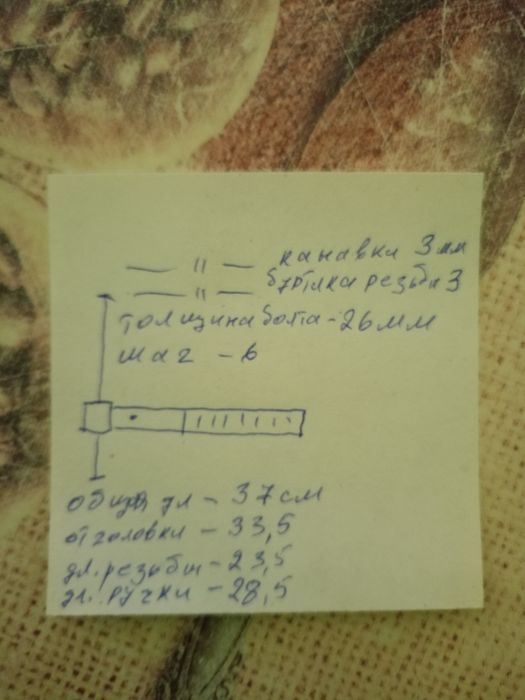 — " — канавки 3 мм
— " — бутылка резьби 3
толщина болта - 26 мм
шаг - 6
общая дл - 37 см
от головки - 33,5
дл. резьби - 23,5
дл. ручки - 28,5